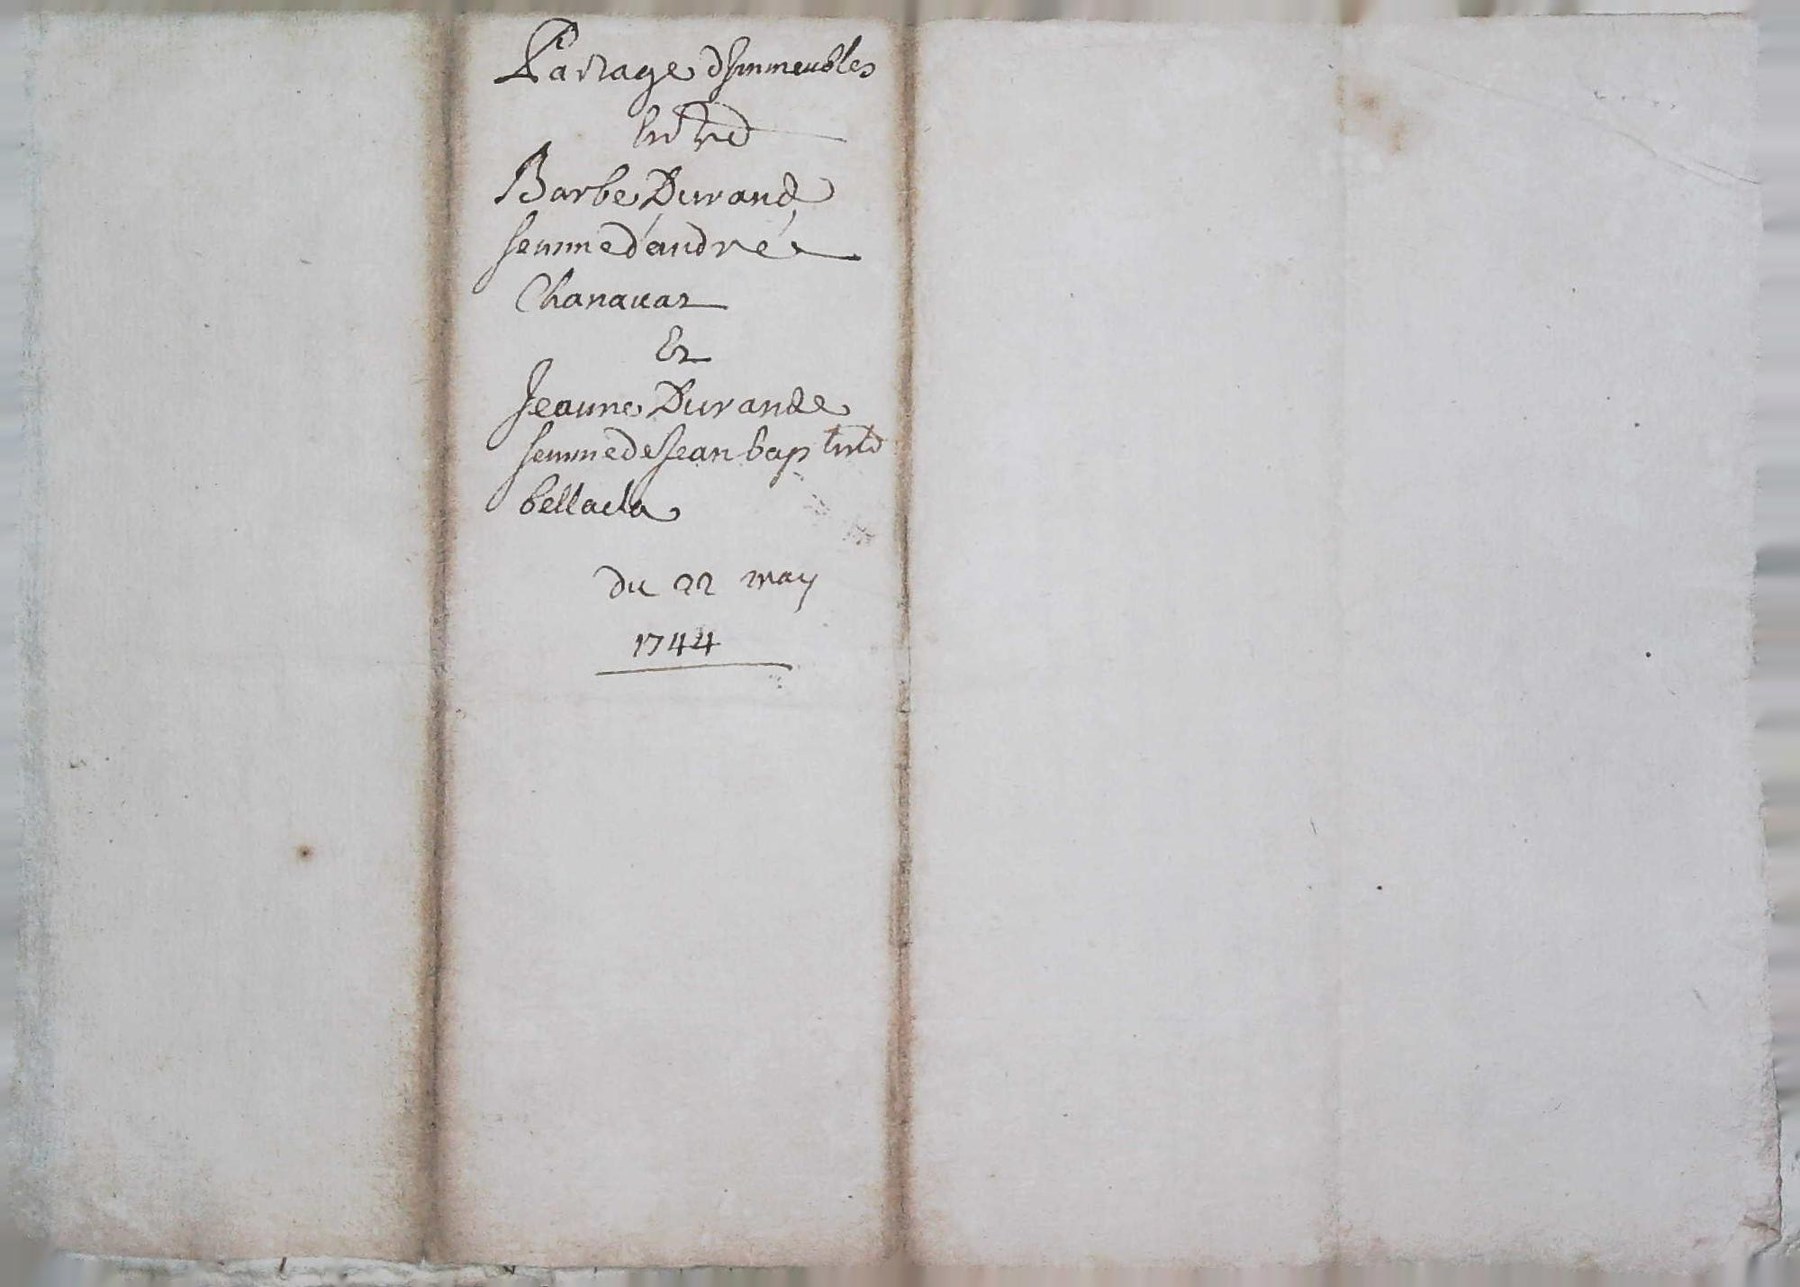 Partage d'Immeubles
Entre
Barbe Durand
femme d'andré
Chanavat
Et
Jeanne Durande
femme de Jean baptiste
bellacla
du 22 may
1744